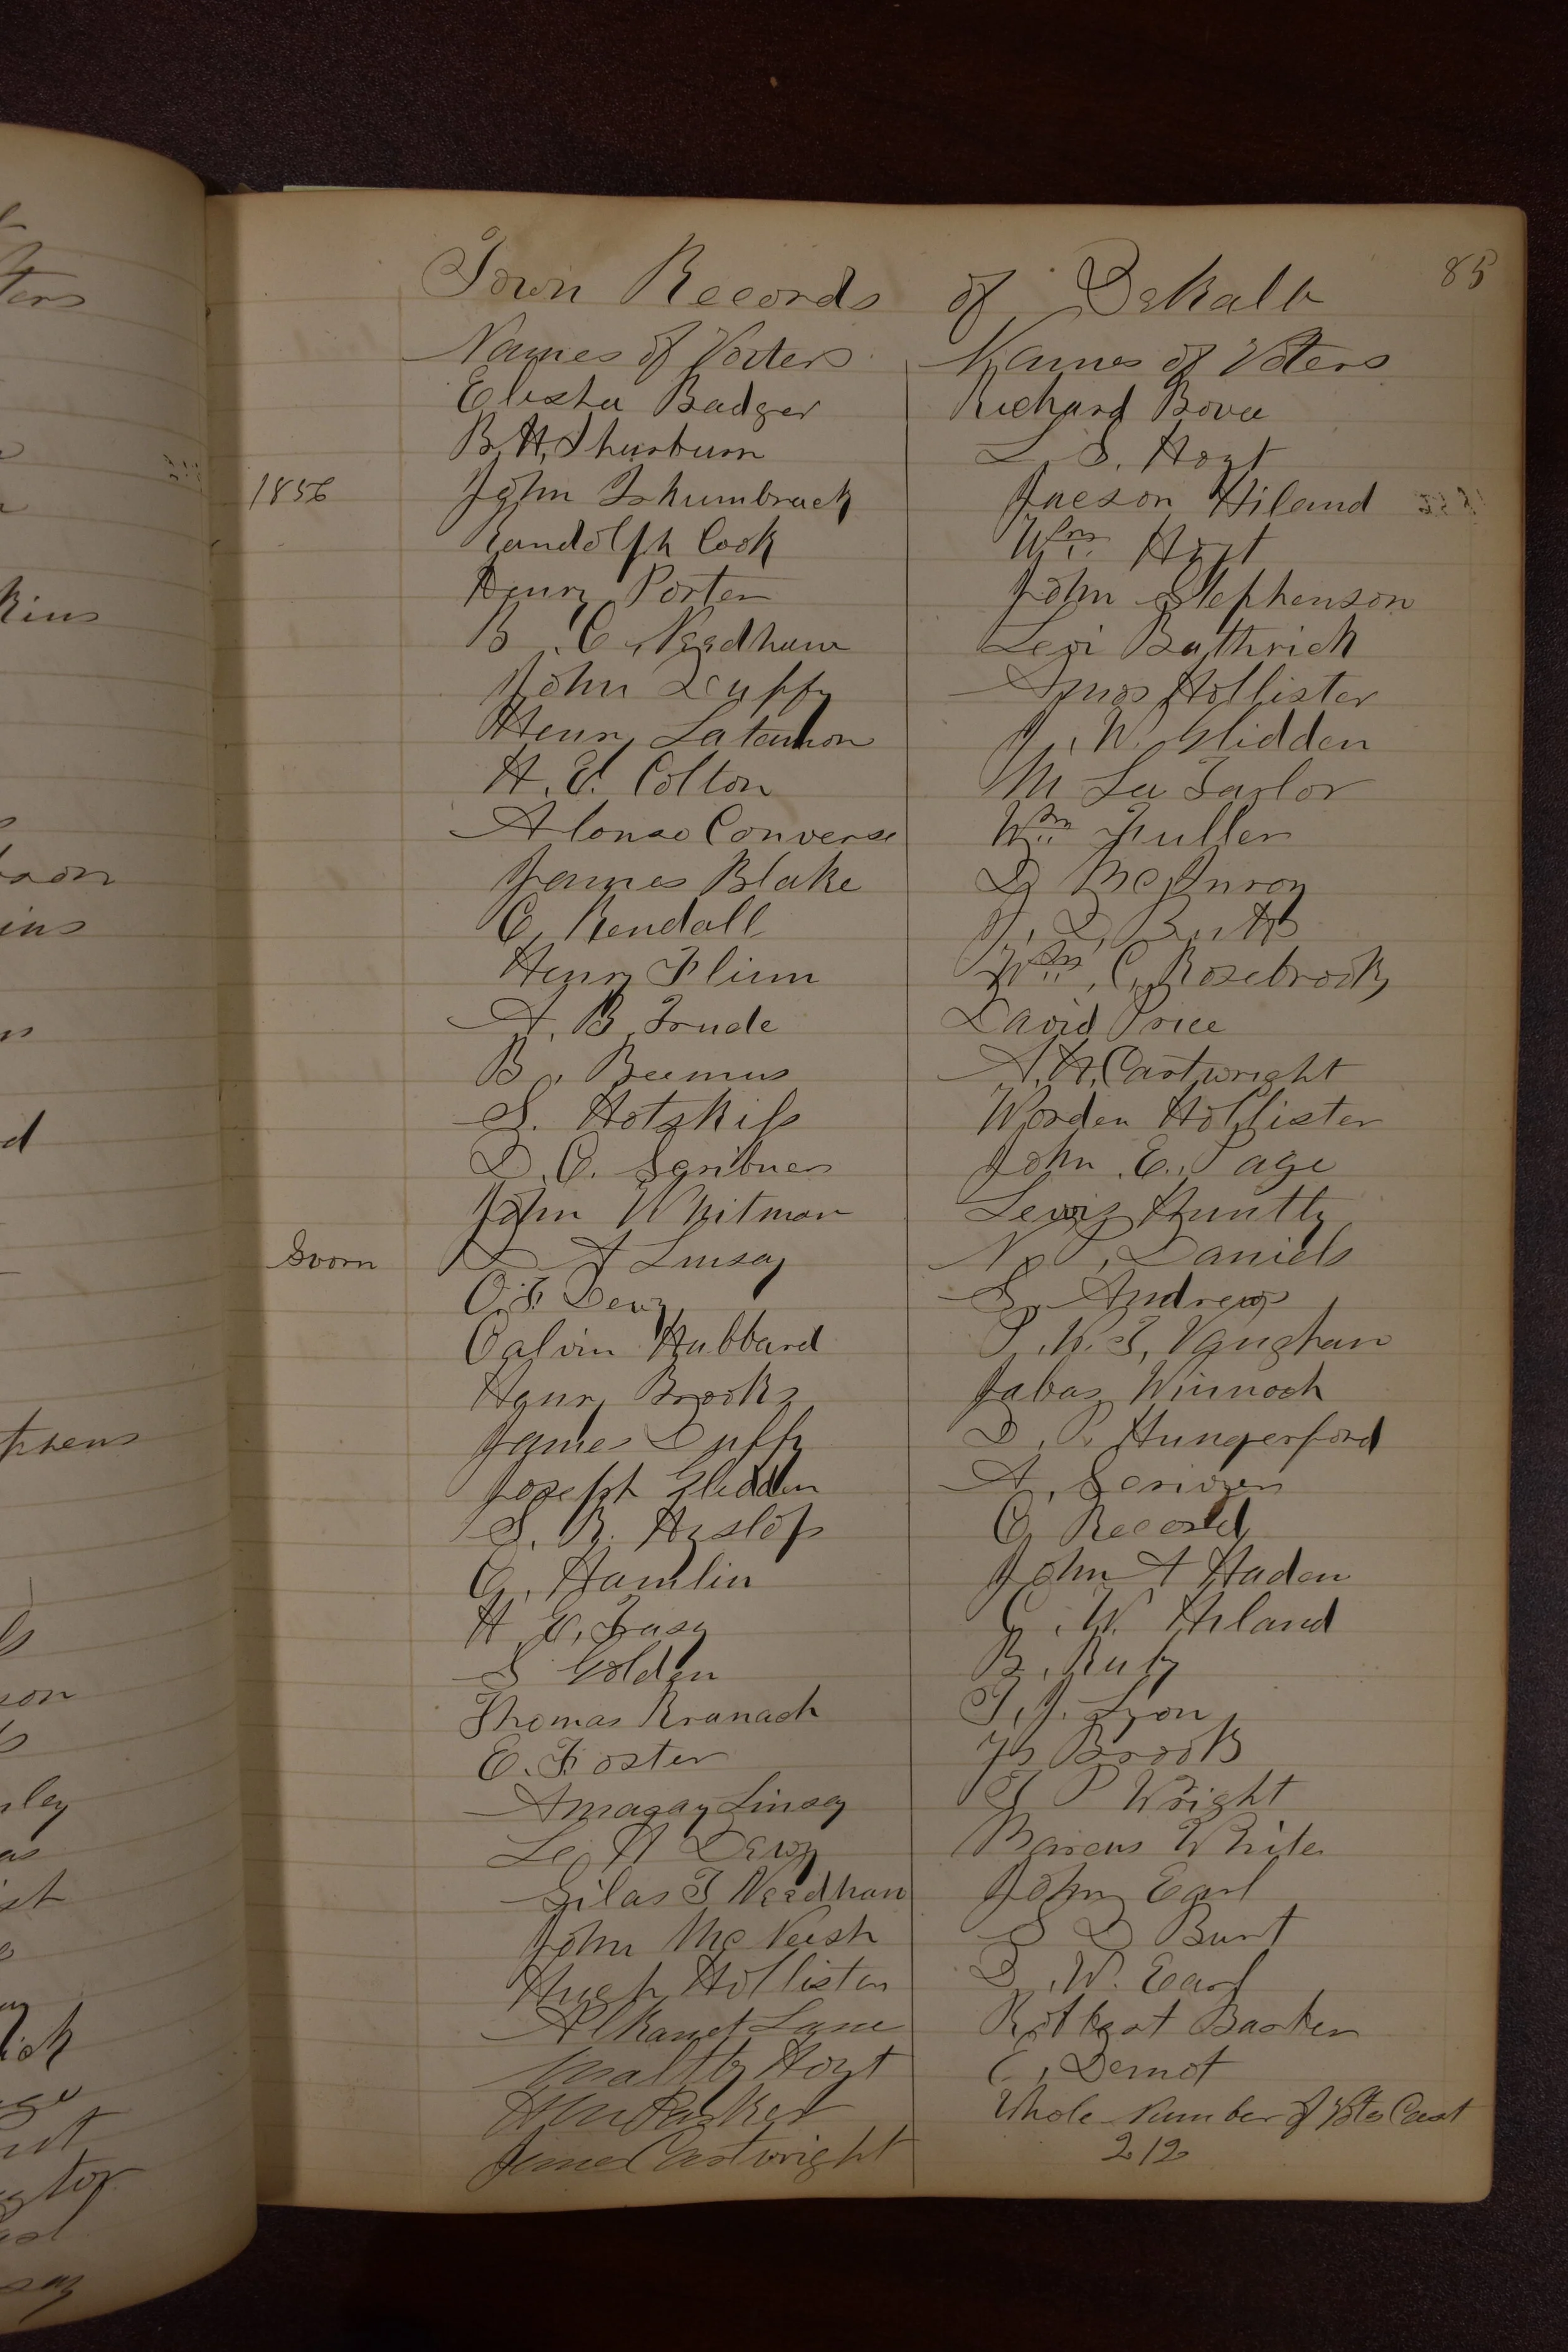 85
Town Records of DeKalb
Names of Voters
Elisha Badger
B. H. Thurburn
1856
John Brumbrack
Randolph Cook
Henry Porter
B. C. Needham
John Duffy
Henry
H. E. Colton
Alonzo Converse
James Blake
C. Kendall
Henry Flinn
A. B. Trude
B. Beemus
S. Hotchkiss
D. C. Scribner
John Whitman
Sworn
D A Linsay
O. F. Dewy
Calvin Hubbard
Henry Brooks
James Duffy
Joseph Glidden
S. R. Heslop
G. Hamlin
H. E. Trasy
S Golden
Thomas Kranach
E. Foster
Amazay Linsey
Le H Dewy
Silas T Needham
John McVeish
Hugh Hollister
Alkanet Lane
Hoyt
Parker
James Cartwright
Names of Voters
Richard Bovee
L. S. Hoyt
Jacson Hiland
Wm Hoyt
John Stephenson
Levi Buthrick
Amos Hollister
J. W. Glidden
M La Tarlor
Wm Fuller
D McInroy
J. D. Butts
Wm C. Rosebrook
David Price
A. H. Cartwright
Worden Hollister
John E. Page
Lewis Huntly
N P. Daniels
S. Andrews
P. W. T. Vaughan
Jabas Winnoch
D. P. Hungerford
A.
C Record
John A Haden
C. W. Hiland
B. Ruby
T. J. Lyon
Brook
T P Wright
Barcus White
John Earl
S D Bunt
D. W. Earl
Barker
E. Demot
Whole Number of Votes Cast
212